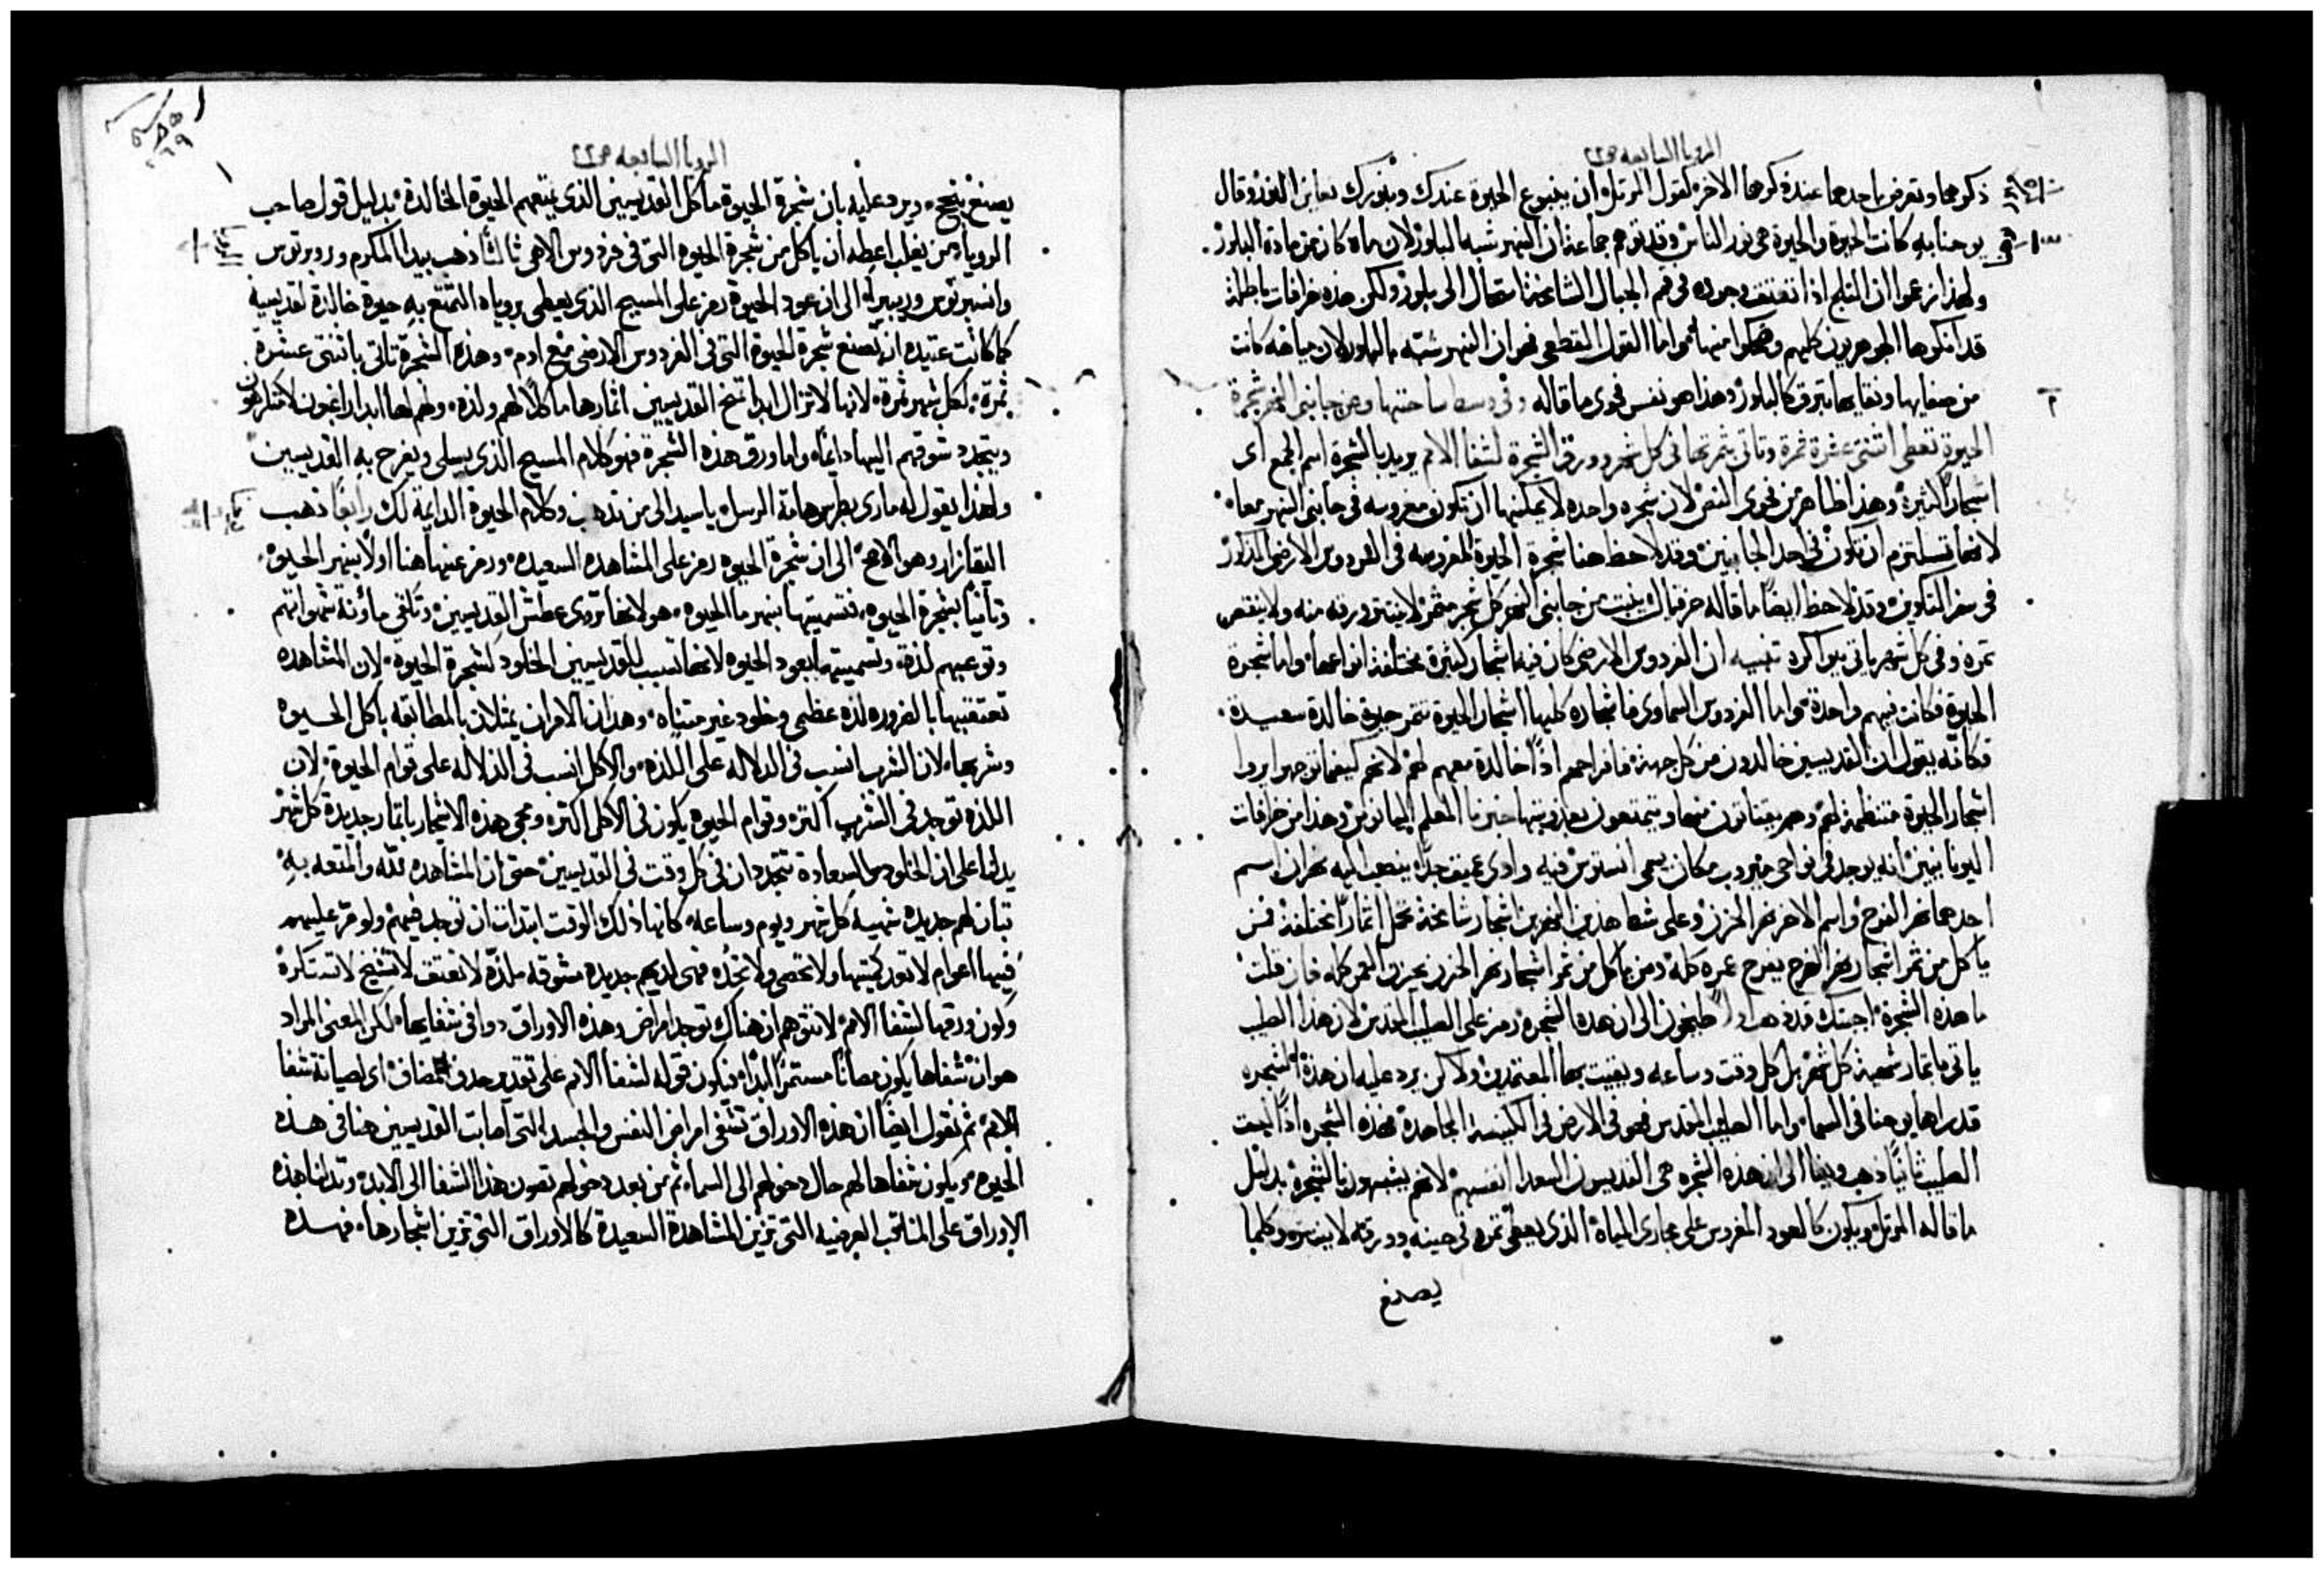 الرويا السابعه ص٢٢
ذكروها وتعرض باحدهما عند ذكرها الاخر كقول المرتل ان ينبوع الحيوة عندك وبنورك نعاين النور وقال
يوحنا به كانت الحيوة والحيوة هي نور الناس وقد توهم جماعة ان النهر شبه بالبلور لان ماه كان من مادة البلور
ولهذا زعموا ان الثلج اذا تعتق وجوده في قمم الجبال الشامخة استحال الى بلور ولكن هذه خرافات باطلة
قد انكرها الجوهريون كلهم وضحكوا منها واما القول القطعي فهو ان النهر شبه بالبلور لان مياهه كانت
من صفايها ونقايها تبرق كالبلور وهذا هو نفس فحوى ما قاله وفي وسط ساحتها ومن جانبي النهر شجرة
الحيوة تعطي اثنتي عشرة ثمرة وتاتي بثمرتها في كل شهر وورق الشجرة لشفا الامم يريد بالشجرة اسم الجمع اى
اشجار كثيرة وهذا ظاهر من فحوى النص لان شجره واحده لا يمكنها ان تكون مغروسه في جانبي النهر معا
لانها تستلزم ان تكون في احد الجانبين وقد لاحظ هنا شجرة الحيوة المغروسه في الفردوس الارضي المذكور
في سفر التكوين وقد لاحظ ايضا ما قاله حزقيال ينبت من جانبي النهر كل شجر مثمر لا ينتثر ورقه منه ولا ينقص
ثمره وفي كل شهر ياتي ببواكره تنبيه ان الفردوس الارضي كان فيه اشجار كثيرة مختلفة انواعها واما شجرة
الحيوة فكانت فيهم واحدة واما الفردوس السماوى فاشجاره كلها اشجار الحيوة تثمر حيوة خالدة سعيدة
فكانه يقول ان القديسين خالدون من كل جهة فافراحهم اذا خالدة معهم لهم لانهم كيفما توجهوا يروا
اشجار الحيوة منتظمة لهم وهم يقتاتون منها ويتمتعون بعذوبتها خبرنا المعلم اليانوس وهذا من خرافات
اليونانيين انه يوجد في نواحي مكان يسمى انستوس فيه وادى عميق جدا ينصب اليه نهران اسم
احدهما نهر الفرح واسم الاخر نهر الحزن وعلى شط هذين النهرين اشجار شامخة تحمل اثمارا مختلفة فمن
ياكل من ثمر اشجار نهر الفرح يفرح عمره كله ومن ياكل من ثمر اشجار نهر الحزن يحزن العمر كله فان قلت
ما هذه الشجرة اجبتك قد ذهب اولا الى ان هذه الشجره رمز على الصليب المقدس لان هذا الصليب
ياتي باثمار شهية كل شهر بل كل وقت وساعه ويقيت بها المعتمدين ولاكن يرد عليه ان هذه الشجره
قد راها يوحنا في السما واما الصليب المقدس فهو في الارض في الكنيسة المجاهدة فهذه الشجره اذا ليست
الصليب ثانيا ذهب الى ان هذه الشجره هي القديسون السعدا انفسهم لانهم يشبهون بالشجرة بدليل
ما قاله المرتل ويكون كالعود المغروس على مجارى المياه الذى يعطي ثمره في حينه وورقه لا ينتثر وكلما
يصنع
الرويا السابعه ص٢٢
يصنع ينجح ويرد عليه بان شجرة الحيوة ماكل القديسين الذى يمتعهم الحيوة الخالدة بدليل قول صاحب
الرويا من يغلب اعطه ان ياكل من شجرة الحيوه التى في فردوس الاهي ثالثا ذهب بيدا المكرم وروبرتوس
وانسبرتوس وريبيرا الى ان عود الحيوة رمز على المسيح الذى يعطى بروياه التمتع به حيوة خالدة لقديسيه
كما كانت عتيده ان تصنع شجرة الحيوة التى في الفردوس الارضى مع ادم وهذه الشجرة تاتي باثنتى عشرة
ثمرة لكل شهر ثمرة لانها لا تزال ابدا تمنح القديسين اثمارها ماكلا لهم ولذه وهم لها ابدا راغبون لا متكرهون
ويتجدد شوقهم اليها دايما واما ورق هذه الشجرة فهو كلام المسيح الذى يسلى ويفرح به القديسين
ولهذا يقول له مارى بطرس هامة الرسل يا سيد الى من نذهب وكلام الحيوة الدايمة لك رابعا ذهب
القازار وهو الاصح الى ان شجرة الحيوه رمز على المشاهده السعيده ورمز عنها هنا اولا بنهر الحيوة
وثانيا بشجرة الحيوه فتسميتها بنهر ما الحيوه هو لانها تروى عطش القديسين وتكفى ماؤنة شهواتهم
وتوعبهم لذة وتسميتها بعود الحيوه لانها تسبب للقديسين الخلود كشجرة الحيوة لان المشاهده
تعتقبها بالضروره لذه عظمى وخلود غير متناه وهذان الامران يمثلان بالمطابقه باكل الحيوه
وشربها لان الشرب انسب في الدلاله على اللذه والاكل انسب في الدلاله على قوام الحيوة لان
اللذه توجد في الشرب اكثر وقوام الحيوه يكون في الاكل اكثر ومجى هذه الاشجار باثمار جديدة كل شهر
يدلنا على ان الخلود والسعادة تتجددان في كل وقت في القديسين حتى ان المشاهده لله والمتعه به
تبان لهم جديده شهيه كل شهر ويوم وساعه كانها ذلك الوقت ابتدات ان توجد فيهم ولو مر عليهم
فيها اعوام لا تعد كميتها ولا تحصى ولا تحد فهى لديهم جديدة مشوقه ملذة لا تعتق لا تشيخ لا تستكره
وكون ورقها لشفا الامم لا تتوهم ان هناك توجد امراض وهذه الاوراق دوا في شفايها لكن المعنى المراد
هو ان شفاها يكون مصانا مستمرا ابدا فيكون قوله لشفا الامم على تقدير حذف المضاف اى لصيانة شفا
الامم ثم نقول ايضا ان هذه الاوراق تشفى امراض النفس والجسد التى اصابت القديسين هنا في هذه
الحيوه ويكون شفاها لهم حال دخولهم الى السما ثم من بعد دخولهم تصون هذا الشفا الى الابد وتدلنا هذه
الاوراق على المناقب العرضيه التى تزين المشاهدة السعيدة كالاوراق التى تزين اشجارها فهذه